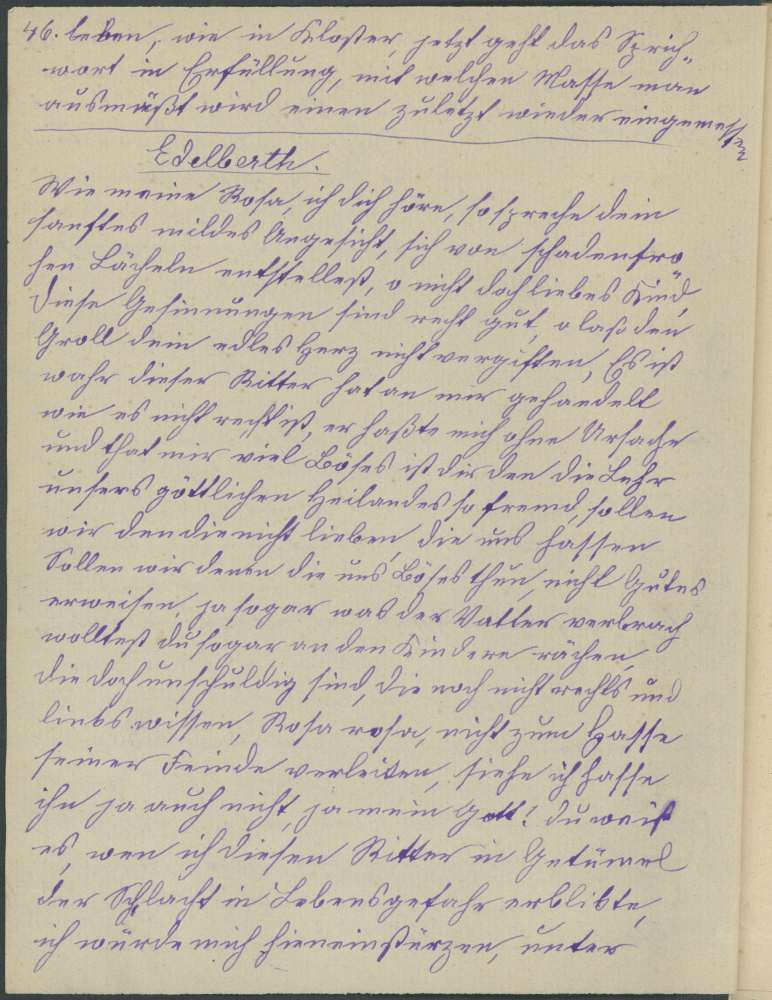 46. leben, wie in Kloster, jetzt geht das Sprich-
wort in Erfüllung, mit welchen Masse man
ausmüßt wird einen zuletzt wieder eingemessen
Edelberth.
Wie meine Rosa, ich dich höre, so spreche dein
sanftes mildes Angesicht, sich von schadenfro
hen Lächeln entstellest, o nicht doch liebes Kind,
diese Gesinnungen sind recht gut, o laß den
Groll dein edles Herz nicht vergiften, Es ist
wahr dieser Ritter hat an mir gehandelt
wie es nicht recht ist, er haßte mich ohne Ursache
und that mir viel Böses ist dir den die Lehr
unsers göttlichen Heilandes so fremd, sollen
wir den die nicht lieben, die uns hassen
Sollen wir denen die uns Böses thun, nicht Gutes
erweisen, ja sogar was der Vatter verbrach
wolltest du sogar an den Kindern rächen,
die doch unschuldig sind, die noch nicht rechts und
links wissen, Rosa rosa, nicht zum Hasse
seiner Feinde verleiten, siehe ich hasse
ihn ja auch nicht, ja mein Gott! du weist
es, wen ich diesen Ritter in Getümel
der Schlacht in Lebensgefahr erblikte,
ich würde mich hieneinstürzen, unter